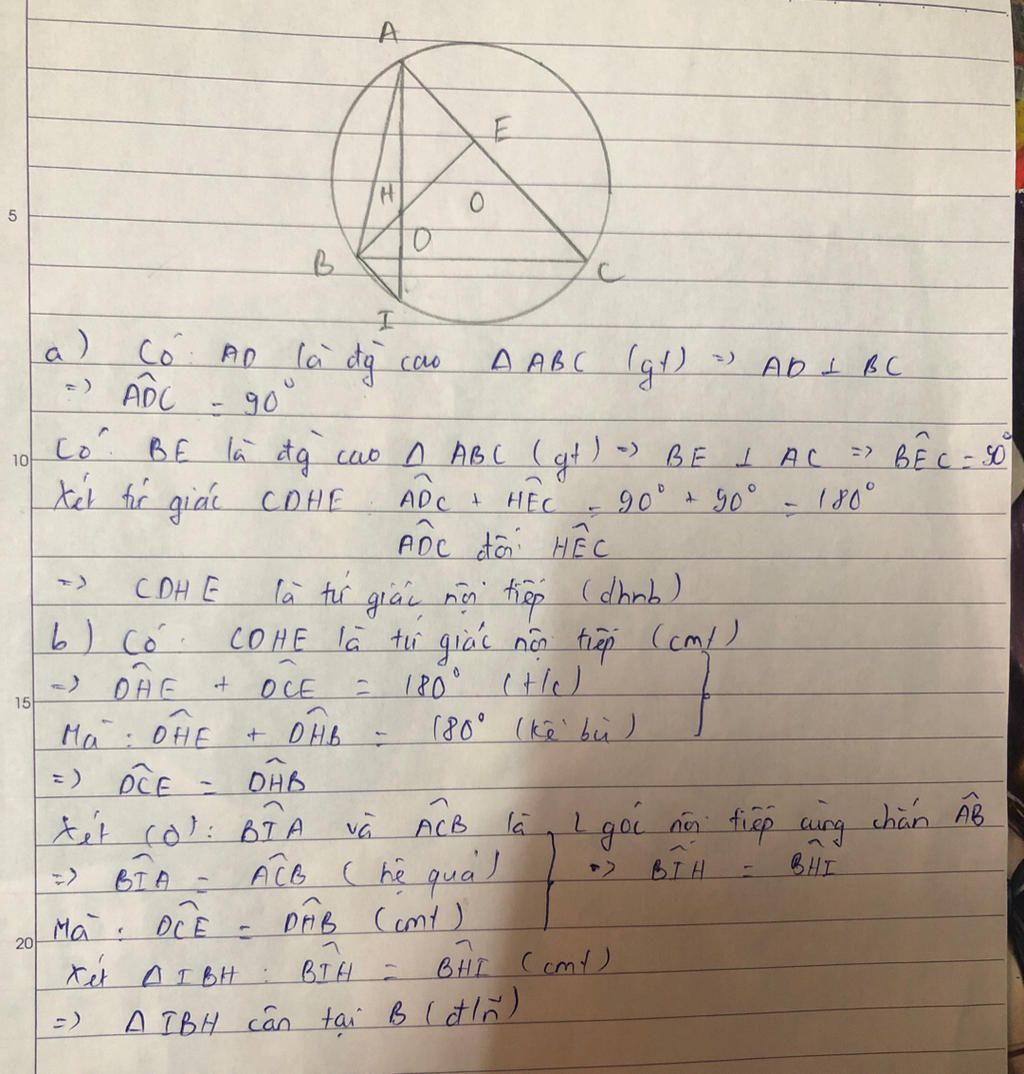 A
E
H
O
5
D
B
C
I
a) Có: AD là đg̀ cao Δ ABC (gt) => AD ⊥ BC
=> ADĈ = 90°
10 Có: BE là đg̀ cao Δ ABC (gt) => BE ⊥ AC => BÊC = 90°
Xét tứ giác CDHE: AD̂C + HÊC = 90° + 90° = 180°
AD̂C đối HÊC
=> CDHE là tứ giác nội tiếp (dhnb)
b) Có: CDHE là tứ giác nội tiếp (cmt)
15 => DĤE + DĈE = 180° (t/c)
Mà: DĤE + DĤB = 180° (kề bù)
=> DĈE = DĤB
Xét (O): BÎA và AĈB là 2 góc nội tiếp cùng chắn AB̂
=> BÎA = AĈB (hệ quả) => BÎH = BĤI
20 Mà: DĈE = DĤB (cmt)
Xét Δ IBH: BÎH = BĤI (cmt)
=> Δ IBH cân tại B (đ/n)